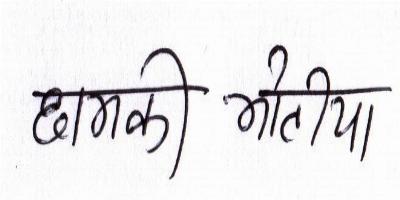 छामकी मोतीया